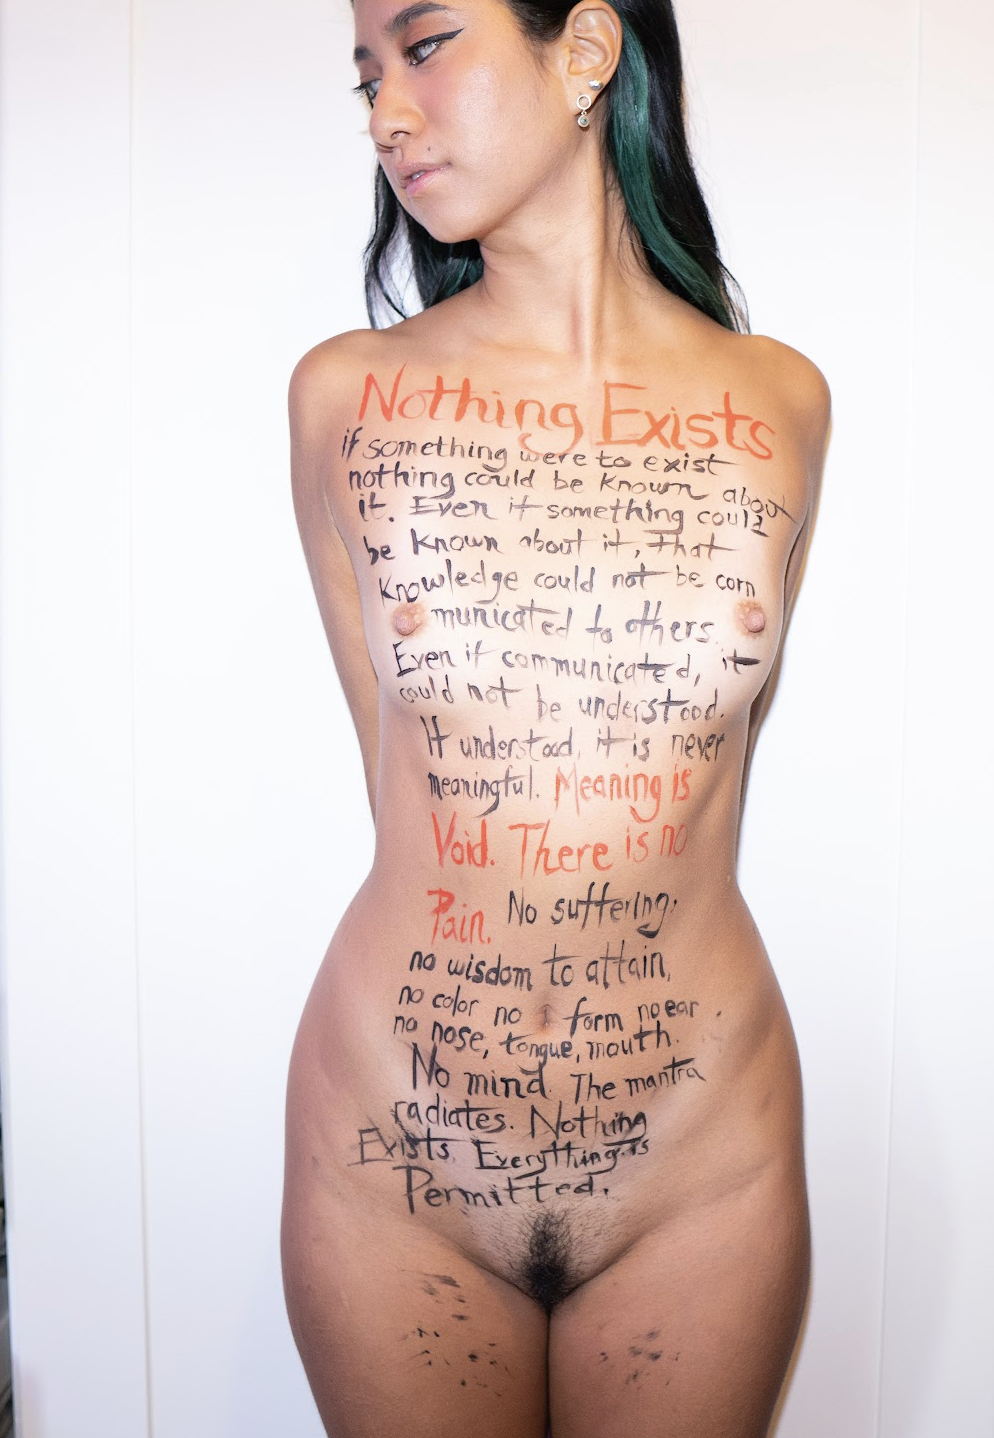 Nothing Exists
if something were to exist
nothing could be known about
it. Even if something could
be known about it, that
knowledge could not be com
municated to others.
Even if communicated, it
could not be understood.
If understood, it is never
meaningful. Meaning is
Void. There is no
Pain. No suffering,
no wisdom to attain,
no color no form no ear
no nose, tongue, mouth.
No mind. The mantra
radiates. Nothing
Exists. Everything is
Permitted.